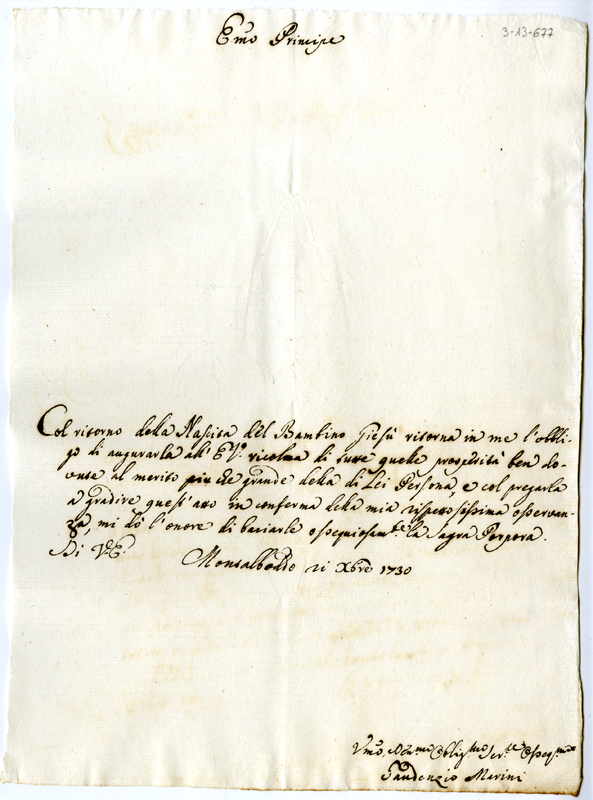 3-13-677
Emo Principe
Col ritorno della Nascita del Bambino Giesù ritorna in me l'obbli-
go di augurarla all' E.V. ricolma di tutte quelle prosperità ben do-
vute al merito più che grande della di Lei Persona, e col pregarla
a gradire quest'atto in conferma della mia rispettosissima osservan-
za, mi dò l'onore di baciarle ossequiosamte la Sagra Porpora.
Di V.E.
Montalboddo 21 Xbre 1730
Vmo, Obligmo Serre Ossequmo
Gaudenzio Marini